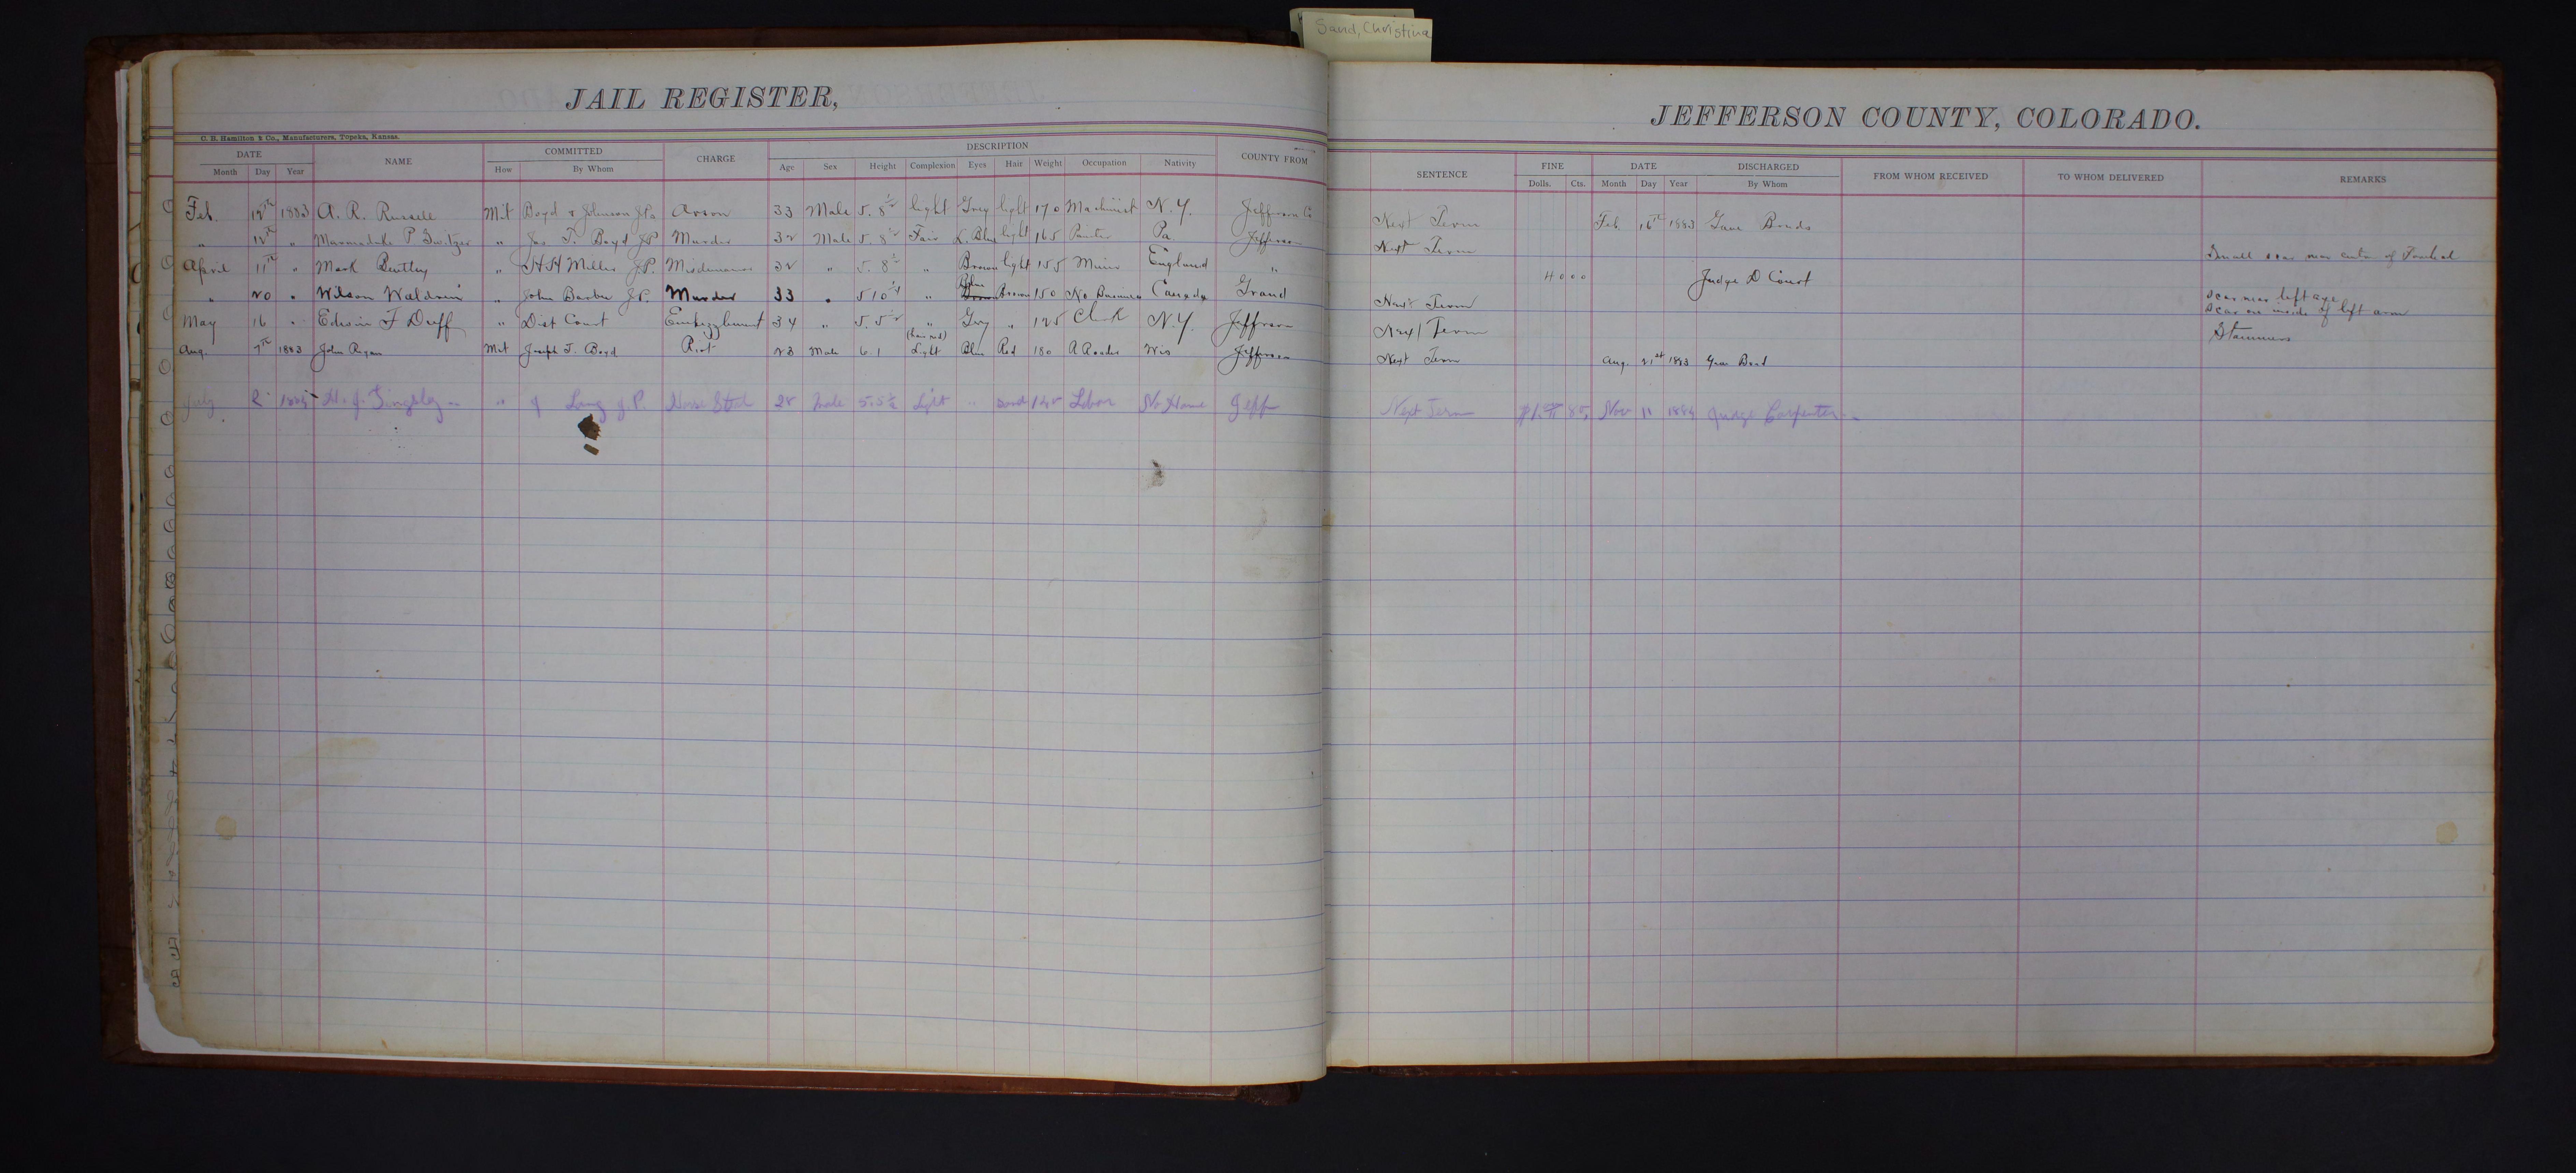 Sand, Christina
JAIL REGISTER,
JEFFERSON COUNTY, COLORADO.
C. B. Hamilton & Co., Manufacturers, Topeka, Kansas.
DATE NAME COMMITTED CHARGE DESCRIPTION COUNTY FROM SENTENCE FINE DATE DISCHARGED FROM WHOM RECEIVED TO WHOM DELIVERED REMARKS
Month Day Year How By Whom Age Sex Height Complexion Eyes Hair Weight Occupation Nativity Dolls. Cts. Month Day Year By Whom
Feb. 12th 1883 A. R. Russell Mit Boyd & Johnson J.Ps Arson 33 Male 5.8 1/2 light Grey light 170 Machinist N.Y. Jefferson Co Next Term Feb. 16th 1883 Gave Bonds
" 12th " Marmaduke P Switzer " Jas. T. Boyd JP Murder 32 Male 5.8 1/2 Fair L. Blue light 165 Painter Pa Jefferson Next Term Small scar near center of Forehead
April 11th " Mark Bentley " H H Miller J.P. Misdemeanor 32 " 5.8 1/2 " Brown light 155 Miner England " 40 00 Judge D Court
" 20 " Wilson Waldron " John Barber J.P. Murder 33 " 5 10 1/4 " Blue Brown 150 No Business Canada Grand Next Term scar near left eye
scar on inside of left arm
May 16 " Edwin F Duff " Dist Court Embezzlement 34 " 5.5 1/2 " Grey " 125 Clerk N.Y. Jefferson Next Term Stammers
Aug. 7th 1883 John Regan Mit Joseph T. Boyd Riot 23 Male 6.1 Light Blue Red 180 Wis Jefferson Next Term Aug. 21st 1883 Gave Bond
July 2 1884 " Long J.P. Horse 28 Male 5.5 1/2 Light " Labor No Home Jeff Next Term 85 Nov 11 1884 Judge Carpenter